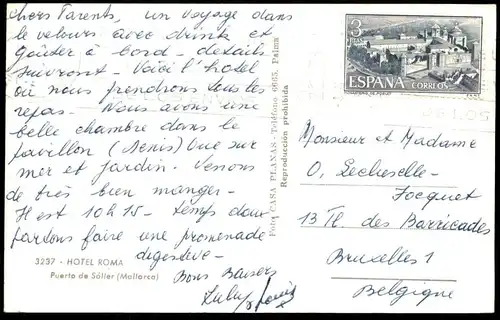 chers Parents, un voyage dans
le velours avec drink et
goûter à bord - details
suivront - Voici l'hôtel
où nous prendrons tous les
repas. Nous avons une
belle chambre dans le
pavillon (Menis) Vue sur
mer et jardin. Venons
de très bien manger -
Il est 10h15 - temps doux
partons faire une promenade
digestive -
Bons Baisers
Lulu
3237 - HOTEL ROMA
Puerto de Sóller (Mallorca)
Foto CASA PLANAS - Teléfono 6665, Palma
Reproducción prohibida
3
PTAS
ESPAÑA
CORREOS
Monsieur et Madame
O, Lecheselle -
Jocquet
13 Pl. des Barricades
Bruxelles 1
Belgique